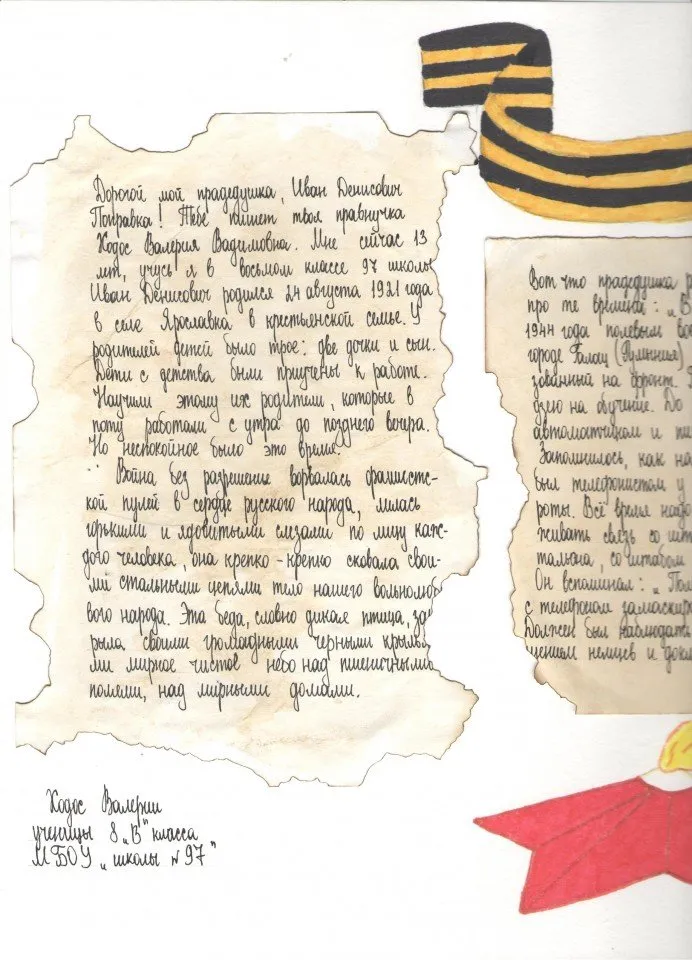 Дорогой мой прадедушка, Иван Денисович
Поправка! Тебе пишет твоя правнучка
Ходос Валерия Вадимовна. Мне сейчас 13
лет, учусь я в восьмом классе 97 школы
Иван Денисович родился 24 августа 1921 года
в селе Ярославка в крестьянской семье. У
родителей детей было трое: две дочки и сын.
Дети с детства были приучены к работе.
Научили этому их родители, которые в
поту работали с утра до позднего вечера.
Но неспокойное было это время.
Война без разрешения ворвалась фашистс-
кой пулей в сердце русского народа, лилась
горькими и ядовитыми слезами по лицу каж-
дого человека, она крепко-крепко сковала свои-
ми стальными цепями тело нашего вольнолю
вого народа. Эта беда, словно дикая птица, за
рыла своими громадными черными крыль
ми мирное чистое небо над пшеничными
полями, над мирными домами.
Ходос Валерии
ученицы 8 „В" класса
МБОУ „школы №97"
Вот что прадедушка р
про те времена: „В
1944 года полевым во
городе Галац (Румыния)
зованный на фронт.
дзею на обучение. До
автоматчиком и пи
Запомнилось, как на
был телефонистом у
роты. Всё время надо
живать связь со шт
тальона, со штабом
Он вспоминал: „Пол
с телефоном замаскир
Должен был наблюдать
щением немцев и докл